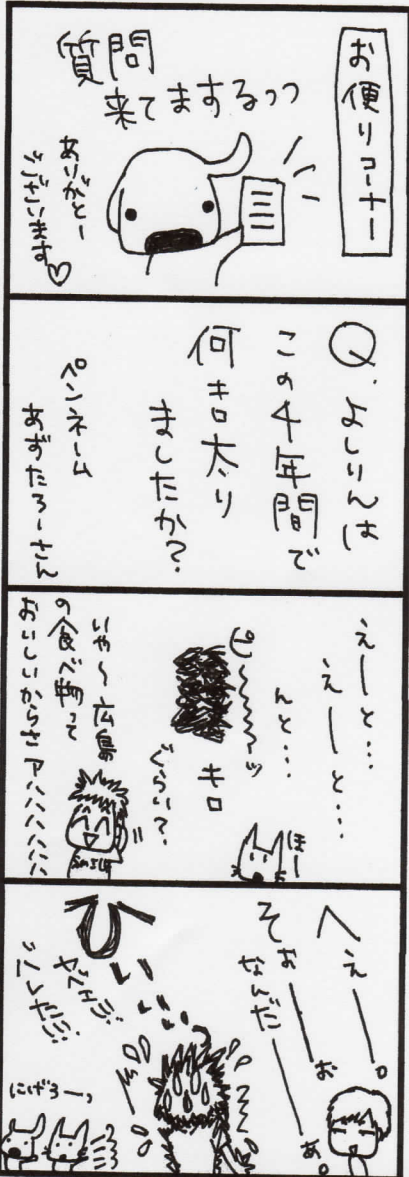 お便りコーナー
質問
来てまするっっ
ありがとー
ございます♡
Q.よしりんは
この4年間で
何キロ太り
ましたか?
ペンネーム
あずたろーさん
えーと…
えーと…
んと…
ピ〜〜〜ッ
キロ
ぐらい?
ほー
いや〜広島
の食べ物って
おいしいからさアハハハハハハ
へぇーー。
そぉーーお
なんだーーぁ。
ヤベェ!!!
にげろーっ